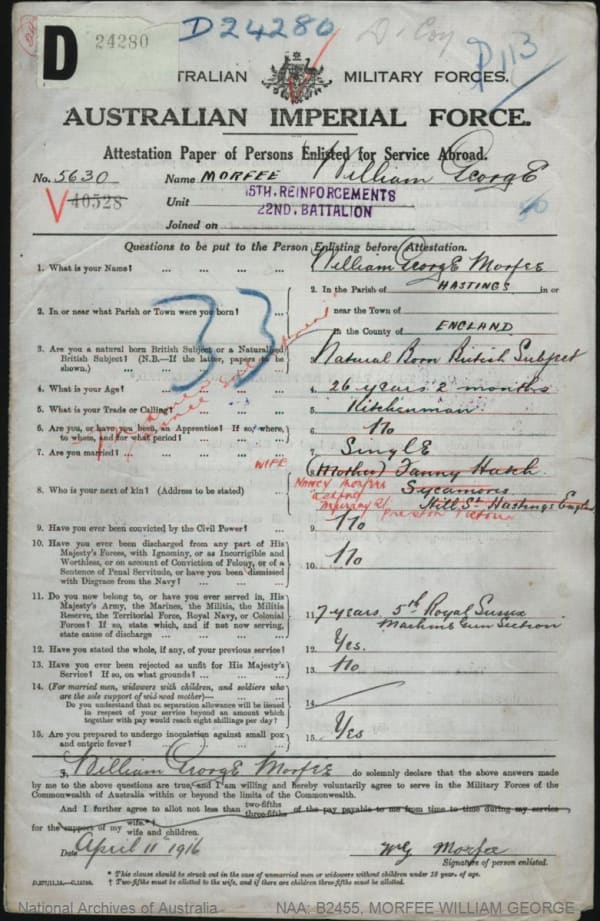 D
24280
D24280
D. Coy
P113
TRALIAN MILITARY FORCES.
AUSTRALIAN IMPERIAL FORCE.
Attestation Paper of Persons Enlisted for Service Abroad.
No. 5630 Name MORFEE William George
V 40528 Unit 15TH. REINFORCEMENTS
22ND. BATTALION
Joined on
Questions to be put to the Person Enlisting before Attestation.
1. What is your Name? William George Morfee
2. In or near what Parish or Town were you born?
2. In the Parish of HASTINGS in or
near the Town of
in the County of ENGLAND
33
3. Are you a natural born British Subject or a Naturalized
British Subject? (N.B.—If the latter, papers to be
shown.) 3. Natural Born British Subject
4. What is your Age? 4. 26 years 2 months
5. What is your Trade or Calling? 5. Kitchenman
6. Are you, or have you been, an Apprentice? If so, where,
to whom, and for what period? 6. No
7. Are you married? 7. Single
WIFE (Mother) Fanny Hutch
8. Who is your next of kin? (Address to be stated)
Nancy Morfee
Sycamore
Hill St Hastings England
Murray St
Preston Victoria
9. Have you ever been convicted by the Civil Power? 9. No
10. Have you ever been discharged from any part of His
Majesty's Forces, with Ignominy, or as Incorrigible and
Worthless, or on account of Conviction of Felony, or of a
Sentence of Penal Servitude, or have you been dismissed
with Disgrace from the Navy? 10. No
11. Do you now belong to, or have you ever served in, His
Majesty's Army, the Marines, the Militia, the Militia
Reserve, the Territorial Force, Royal Navy, or Colonial
Forces? If so, state which, and if not now serving,
state cause of discharge 11. 7 years. 5th Royal Sussex
Machine Gun Section
12. Have you stated the whole, if any, of your previous service? 12. Yes.
13. Have you ever been rejected as unfit for His Majesty's
Service? If so, on what grounds? 13. No
14. (For married men, widowers with children, and soldiers who
are the sole support of widowed mother)—
Do you understand that no separation allowance will be issued
in respect of your service beyond an amount which
together with pay would reach eight shillings per day? 14.
15. Are you prepared to undergo inoculation against small pox
and enteric fever? 15. Yes
I, William George Morfee do solemnly declare that the above answers made
by me to the above questions are true, and I am willing and hereby voluntarily agree to serve in the Military Forces of the
Commonwealth of Australia within or beyond the limits of the Commonwealth.
And I further agree to allot not less than two-fifths three-fifths of the pay payable to me from time to time during my service
for the support of my wife.*
wife and children.
Date April 11th 1916 WG Morfee
Signature of person enlisted.
* This clause should be struck out in the case of unmarried men or widowers without children under 18 years of age.
† Two-fifths must be allotted to the wife, and if there are children three-fifths must be allotted.
National Archives of Australia NAA: B2455, MORFEE WILLIAM GEORGE